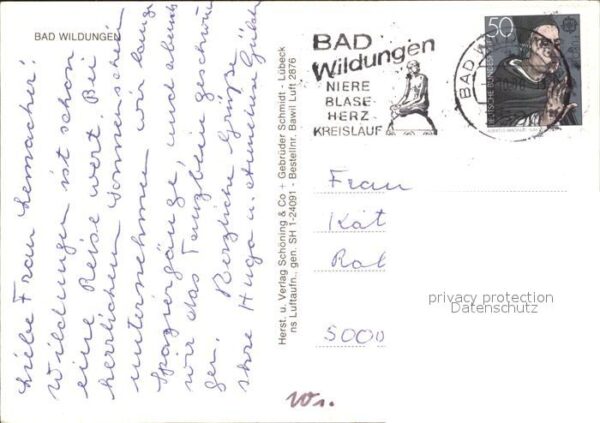 BAD WILDUNGEN
Liebe Frau
Wildungen ist schon
eine Reise wert. Bei
herrlichem Sonnenschein
unternehmen wir lange
Spaziergänge, und abends
wir das Tanzbein geschwun
gen. Herzliche Grüße
Ihre Hugo u. Anneliese
Herst. u. Verlag Schöning & Co + Gebrüder Schmidt - Lübeck
ns Luftaufn., gen. SH 1-24091 - Bestellnr. Bawil Luft 2876
BAD
Wildungen
NIERE
BLASE-
HERZ-
KREISLAUF
BAD WI
50
DEUTSCHE BUNDESPOST
Frau
Kät
Ral
5000
privacy protection
Datenschutz